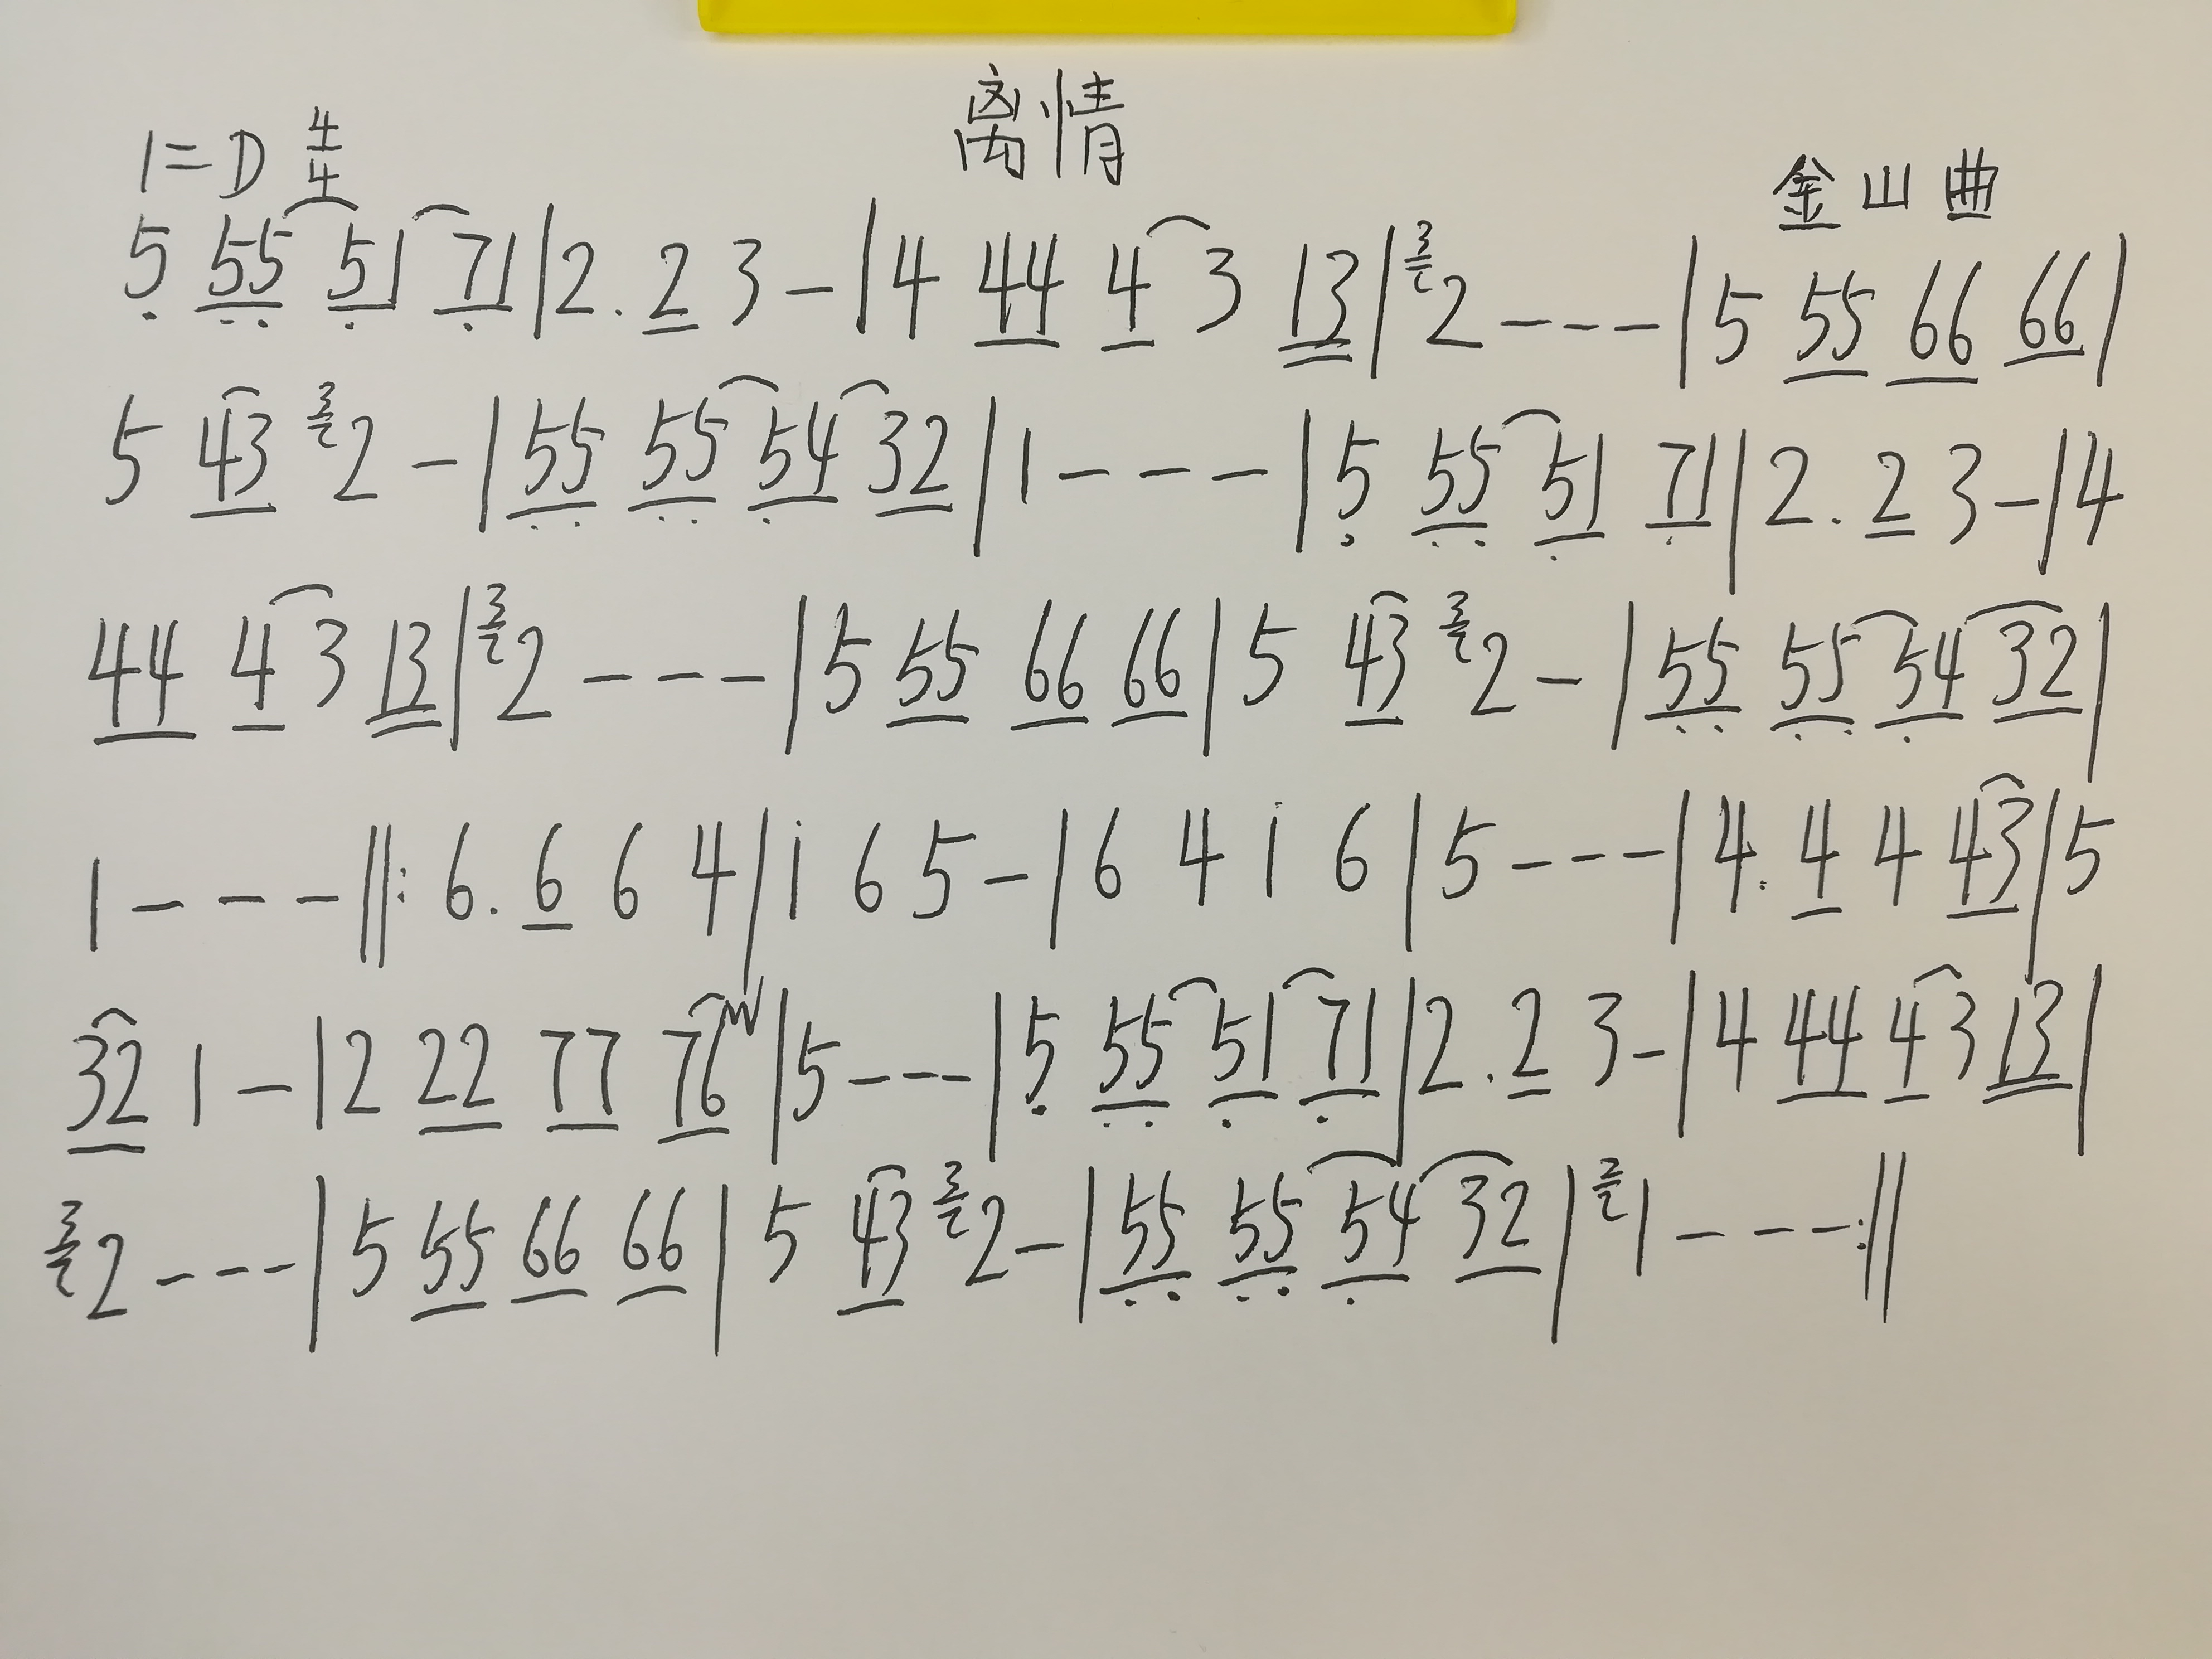 离情
1=D 4/4
金山曲
5 55 51 71|2. 2 3 -|4 44 4 3 13|3 2 - - -|5 55 66 66|
5 43 3 2 -|55 55 54 32|1 - - -|5 55 51 71|2. 2 3 -|4
44 4 3 13|3 2 - - -|5 55 66 66|5 43 3 2 -|55 55 54 32|
1 - - -‖: 6. 6 6 4|i 6 5 -|6 4 i 6|5 - - -|4. 4 4 43|5
32 1 -|2 22 77 76|5 - - -|5 55 51 71|2. 2 3 -|4 44 4 3 13|
3 2 - - -|5 55 66 66|5 43 3 2 -|55 55 54 32|3 1 - - -:‖